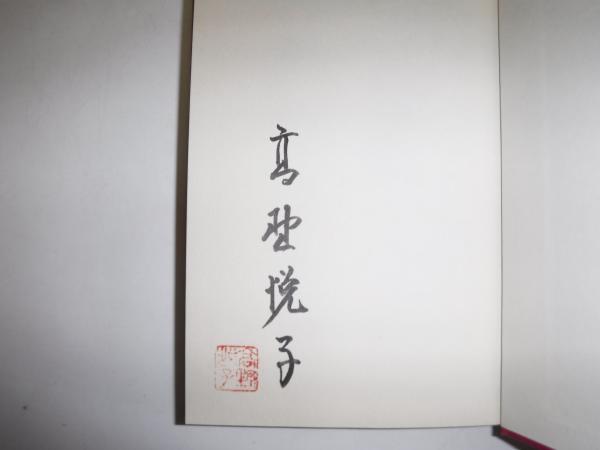 高野悦子